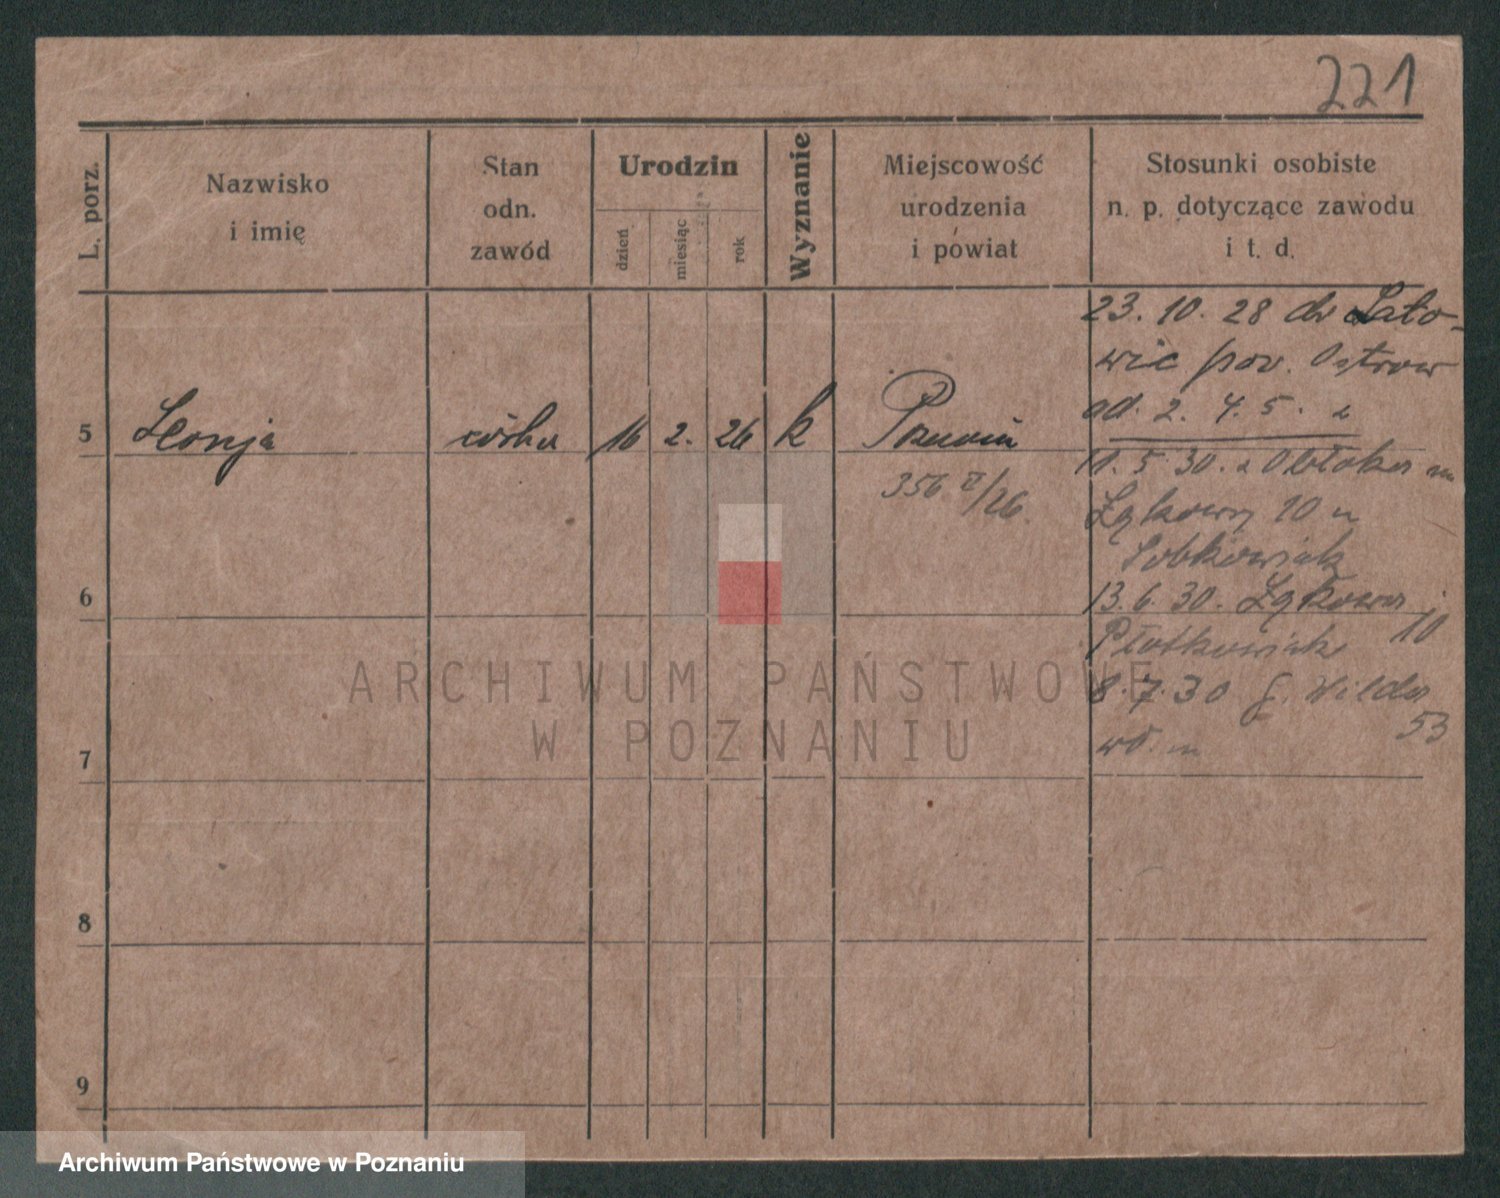 221
L. porz.
Nazwisko
i imię
Stan
odn.
zawód
Urodzin
dzień
miesiąc
rok
Wyznanie
Miejscowość
urodzenia
i powiat
Stosunki osobiste
n. p. dotyczące zawodu
i t. d.
23. 10. 28 do Lato-
wic pow. Ostrow
od. 2. 4. 5.
5 Leonja córka 16 2. 26 k Poznań
356 II/26.
11. 5 30. z Ołtoka
Łąkowy 10
Sobkowiak
6
13. 6. 30. Łąkowa 10
Płotkowiak
8. 7. 30 G. Wilda 53
wł. m
7
8
9
ARCHIWUM PAŃSTWOWE
W POZNANIU
Archiwum Państwowe w Poznaniu